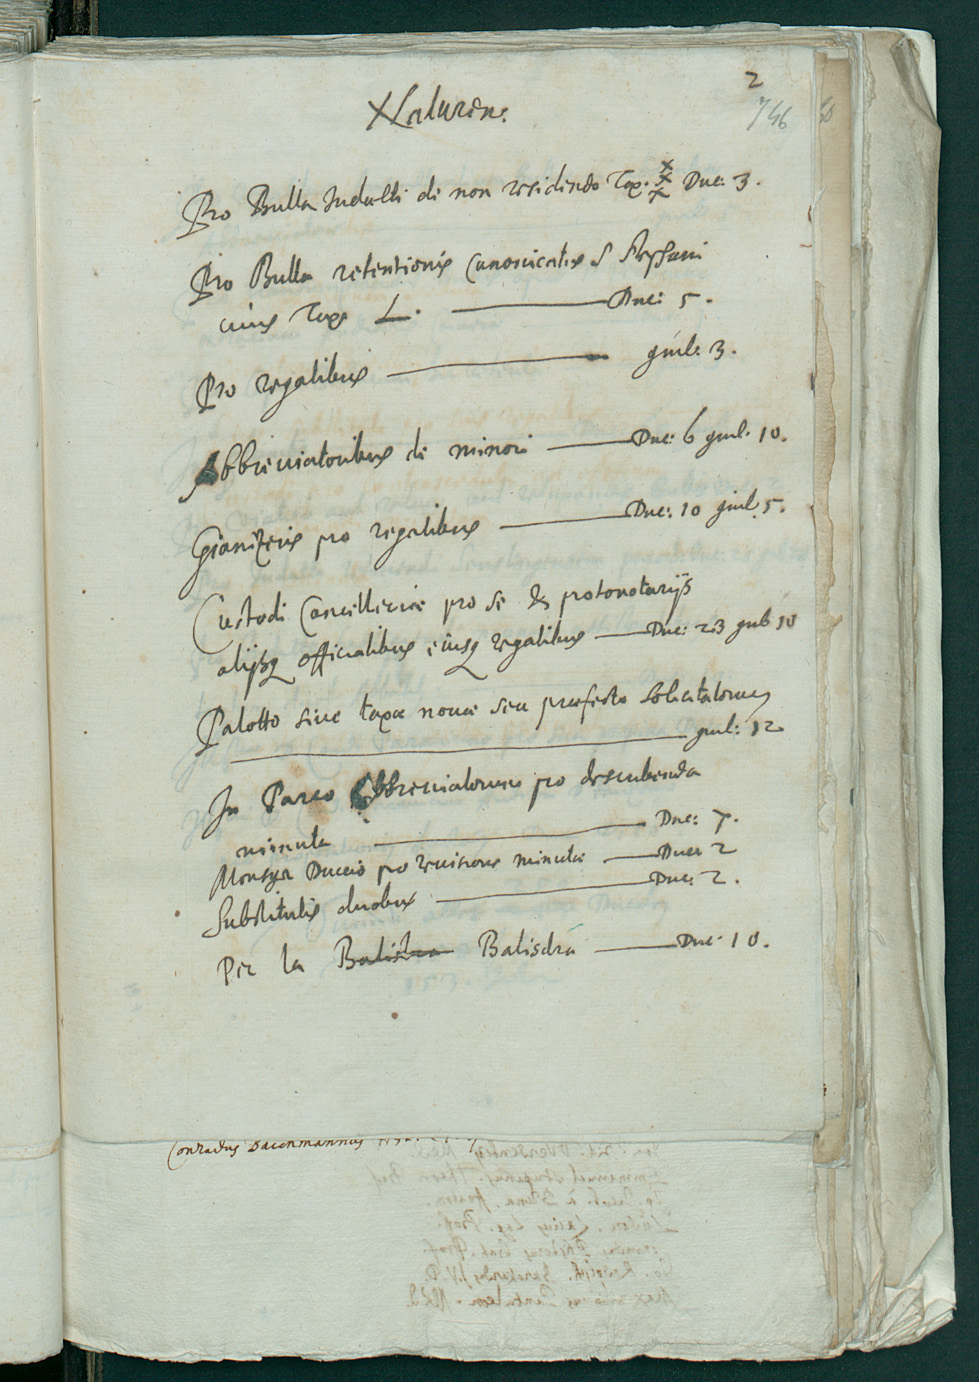 2
746
Pro Bulla Indulti di non residendo Tax. xxx Duc: 3.
Pro Bulla retentionis Canonicatus S Steffani
cuius Taxe L. Duc: 5.
Pro regalibus giul: 3.
Abbreviatoribus di minori Duc: 6 giul. 10.
Gianizeris pro regalibus Duc: 10 giul. 5.
Custodi Cancellerie pro se & protonotarijs
alijsq officialibus eiusq regalibus Duc: 23 giul 10
Palotto sive taxae novae seu praefecto solicitatorum
giul: 12
In Parco Abbreviatorum pro describenda
minuta Duc: 7.
Duccio pro revisione minutae Duc: 2
Substitutis duobus Duc: 2.
Per la Balistra Balisdra Duc: 10.
Conradus Bachmannus